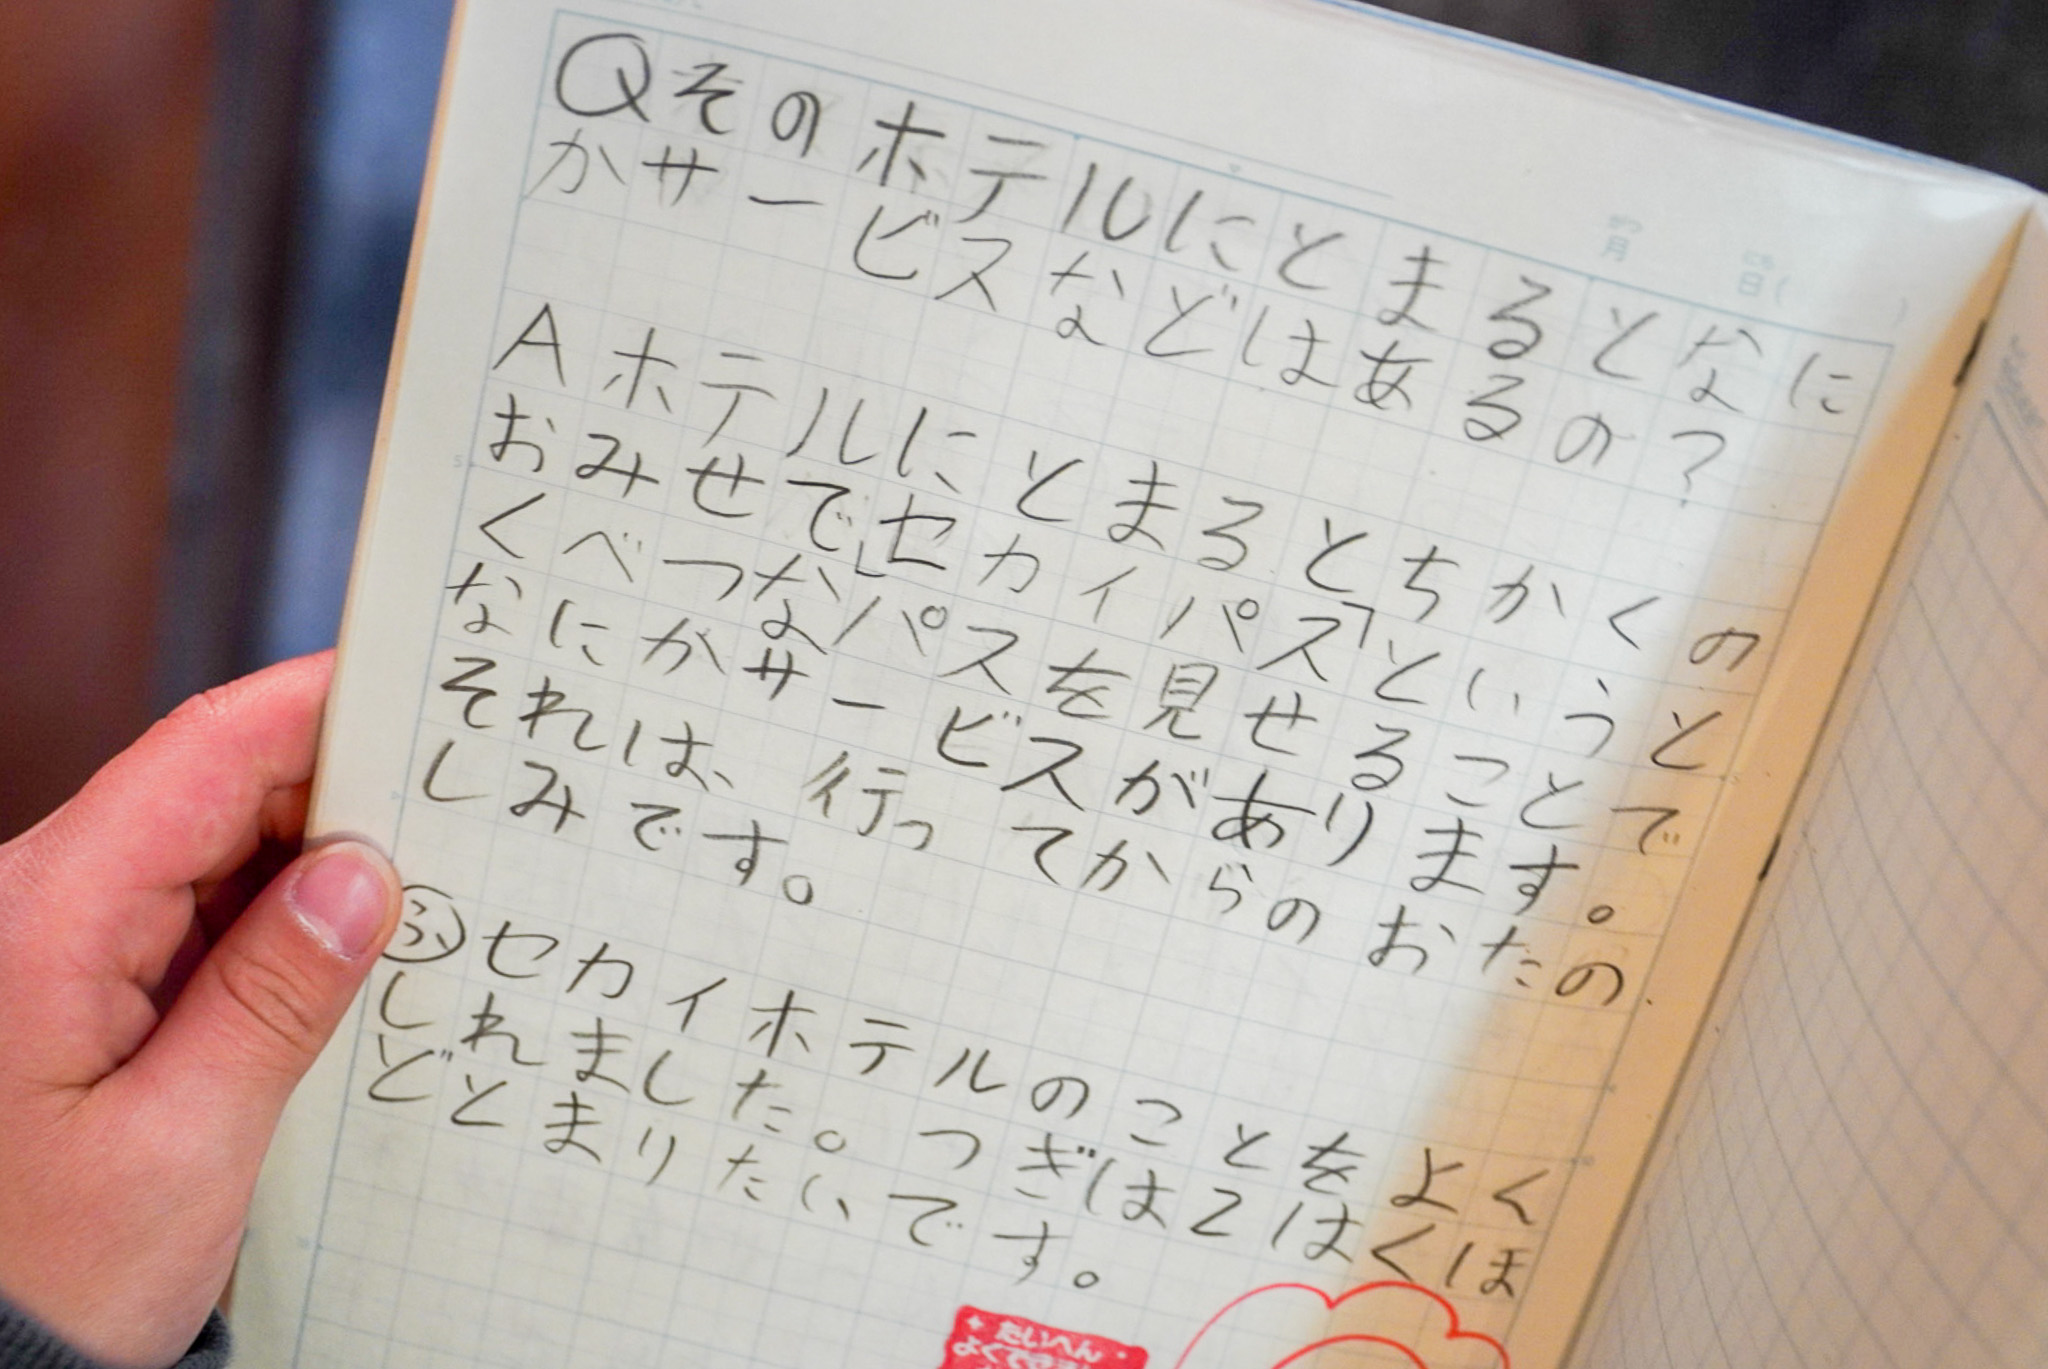 月 日( )
Qそのホテルにとまるとなに
かサービスなどはあるの?
Aホテルにとまるとちかくの
おみせで「セカイパス」というと
くべつなパスを見せることで
なにかサービスがあります。
それは、行ってからのおたの
しみです。
ふセカイホテルのことをよく
しれました。つぎは2はくほ
どとまりたいです。
たいへん